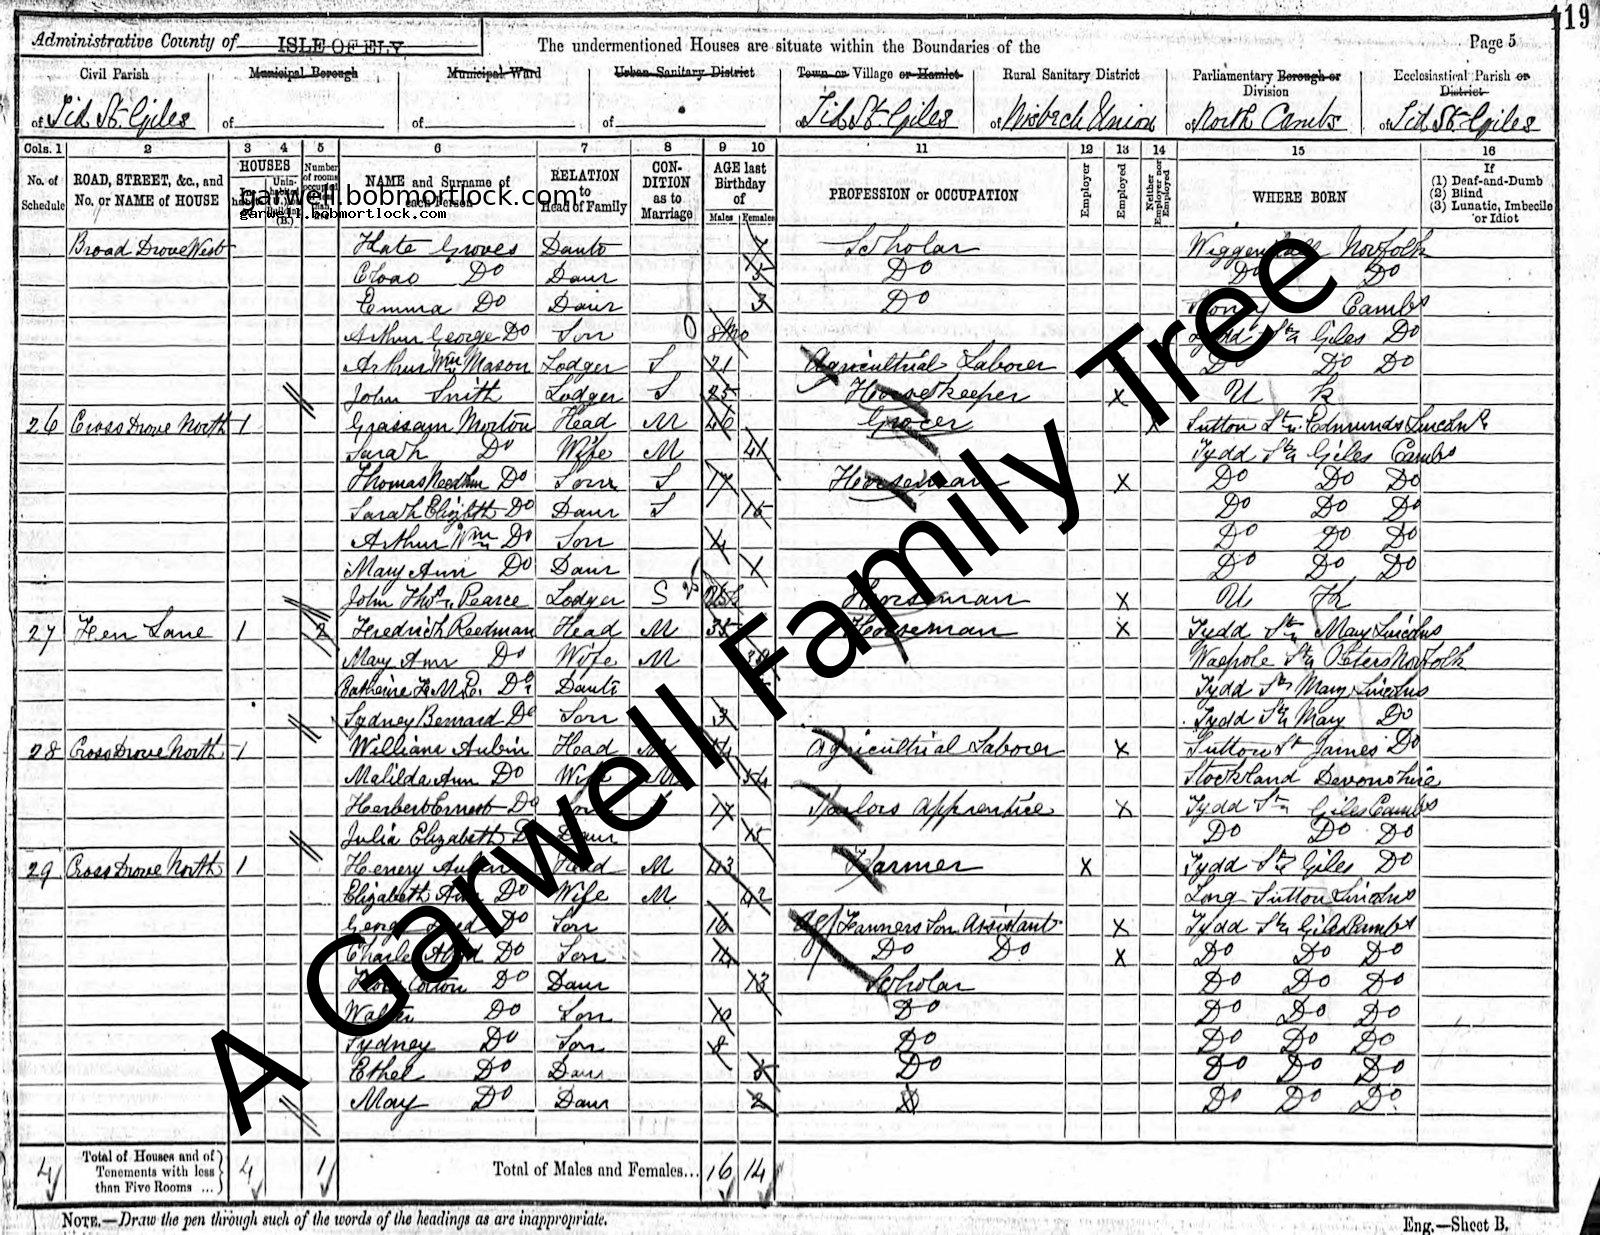 119
Administrative County of ISLE OF ELY
The undermentioned Houses are situate within the Boundaries of the
Page 5
Civil Parish
Municipal Borough
Municipal Ward
Urban Sanitary District
Town or Village or Hamlet
Rural Sanitary District
Parliamentary Borough or Division
Ecclesiastical Parish or District
of Tid St. Giles
of
of
of
of Tid St. Giles
of Wisbech Union
of North Cambs
of Tid St. Giles
Cols. 1 2 3 4 5 6 7 8 9 10 11 12 13 14 15 16
No. of Schedule
ROAD, STREET, &c., and No. or NAME of HOUSE
HOUSES
Number of rooms occupied
NAME and Surname of each Person
RELATION to Head of Family
CONDITION as to Marriage
AGE last Birthday of
Males Females
PROFESSION or OCCUPATION
Employer
Employed
Neither Employer nor Employed
WHERE BORN
If
(1) Deaf-and-Dumb
(2) Blind
(3) Lunatic, Imbecile or Idiot
garwell.bobmortlock.com
garwell.bobmortlock.com
Broad Drove West Kate Groves 7 Scholar Norfolk
Do Daur 5 Do Do Do
Emma Do Daur 3 Do Cambs
Arthur George Do Son 8mo Tydd St Giles Do
Arthur Wm Mason Lodger S 21 Agricultrial Laborer Do Do Do
John Smith Lodger S 25 Horsekeeper X U K
26 Cross Drove North 1 Grassam Morton Head M 46 Grocer X Sutton St Edmunds
Sarah Do Wife M 41 Tydd St Giles Cambs
Thomas Do Son S 17 Horseman X Do Do Do
Sarah Elizbth Do Daur S 15 Do Do Do
Arthur Wm Do Son 4 Do Do Do
Mary Ann Do Daur 1 Do Do Do
John Thos Pearce Lodger S Horseman X U K
27 Hen Lane 1 2 Fredrich Reedman Head M 35 Horseman X Tydd St Mary Lincolns
Mary Ann Do Wife M Walpole St Peters Norfolk
Catherine Do Tydd St Mary Lincolns
Sydney Bernard Do Son 3 Tydd St Mary Do
28 Cross Drove North 1 William Aubin Head M Agricultrial Laborer X Sutton St James Do
Matilda Ann Do Wife M 54 Stockland Devonshire
Herbert Ernest Do Son 17 Taylors Apprentice X Tydd St Giles Cambs
Julia Elizabeth Do Daur 15 Do Do Do
29 Cross Drove North 1 Henery Aubin Head M 43 Farmer X Tydd St Giles Do
Elizabeth Ann Do Wife M 42 Long Sutton Lincolns
George Do Son 16 Farmers Son Assistant X Tydd St Giles Cambs
Charles Do Son 14 Do Do X Do Do Do
Cotton Do Daur 13 Scholar Do Do Do
Walter Do Son 10 Do Do Do Do
Sydney Do Son 8 Do Do Do Do
Ethel Do Daur 5 Do Do Do Do
May Do Daur 2 Do Do Do
4 Total of Houses and of Tenements with less than Five Rooms ... 4 1 Total of Males and Females... 16 14
NOTE.—Draw the pen through such of the words of the headings as are inappropriate.
Eng.—Sheet B.
A Garwell Family Tree